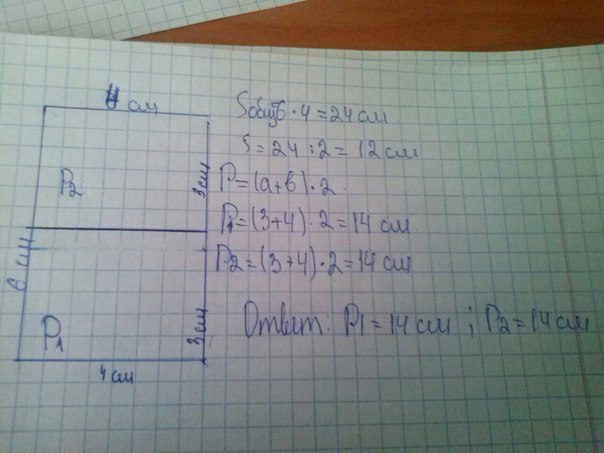 4 см
Sобщ 6 · 4 = 24 см
S = 24 : 2 = 12 см
P = (a + b) · 2
P1 = (3 + 4) · 2 = 14 см
P2 = (3 + 4) · 2 = 14 см
Ответ: P1 = 14 см ; P2 = 14 см
P2
3 см
6 см
P1
3 см
4 см